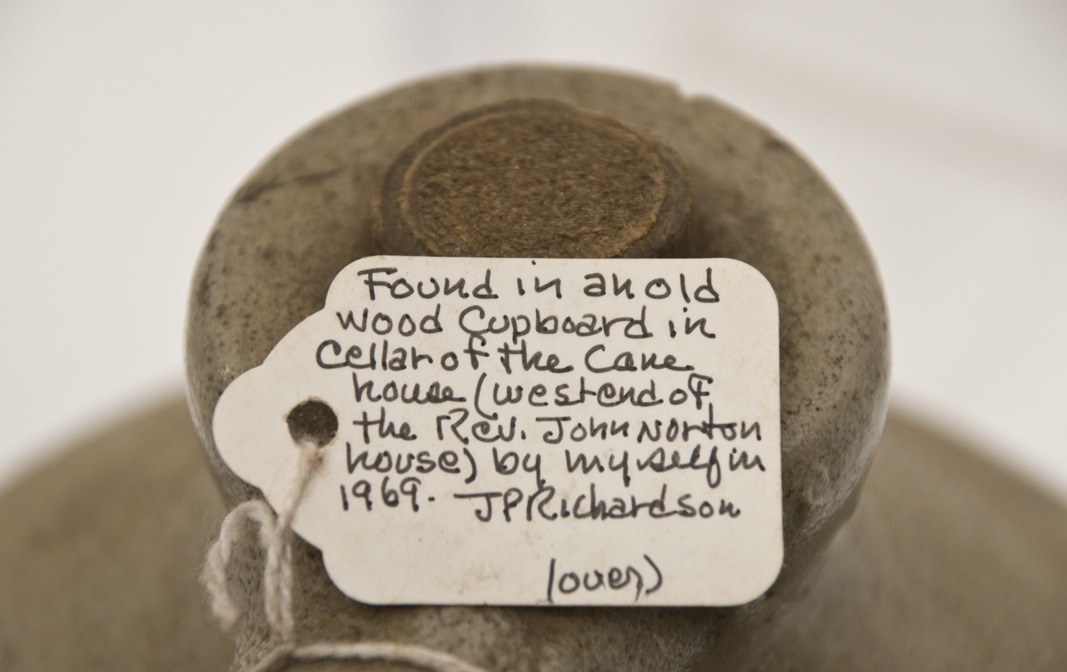 Found in an old
wood Cupboard in
Cellar of the Cane
house (west end of
the Rev. John Norton
house) by myself in
1969. JPRichardson
(over)